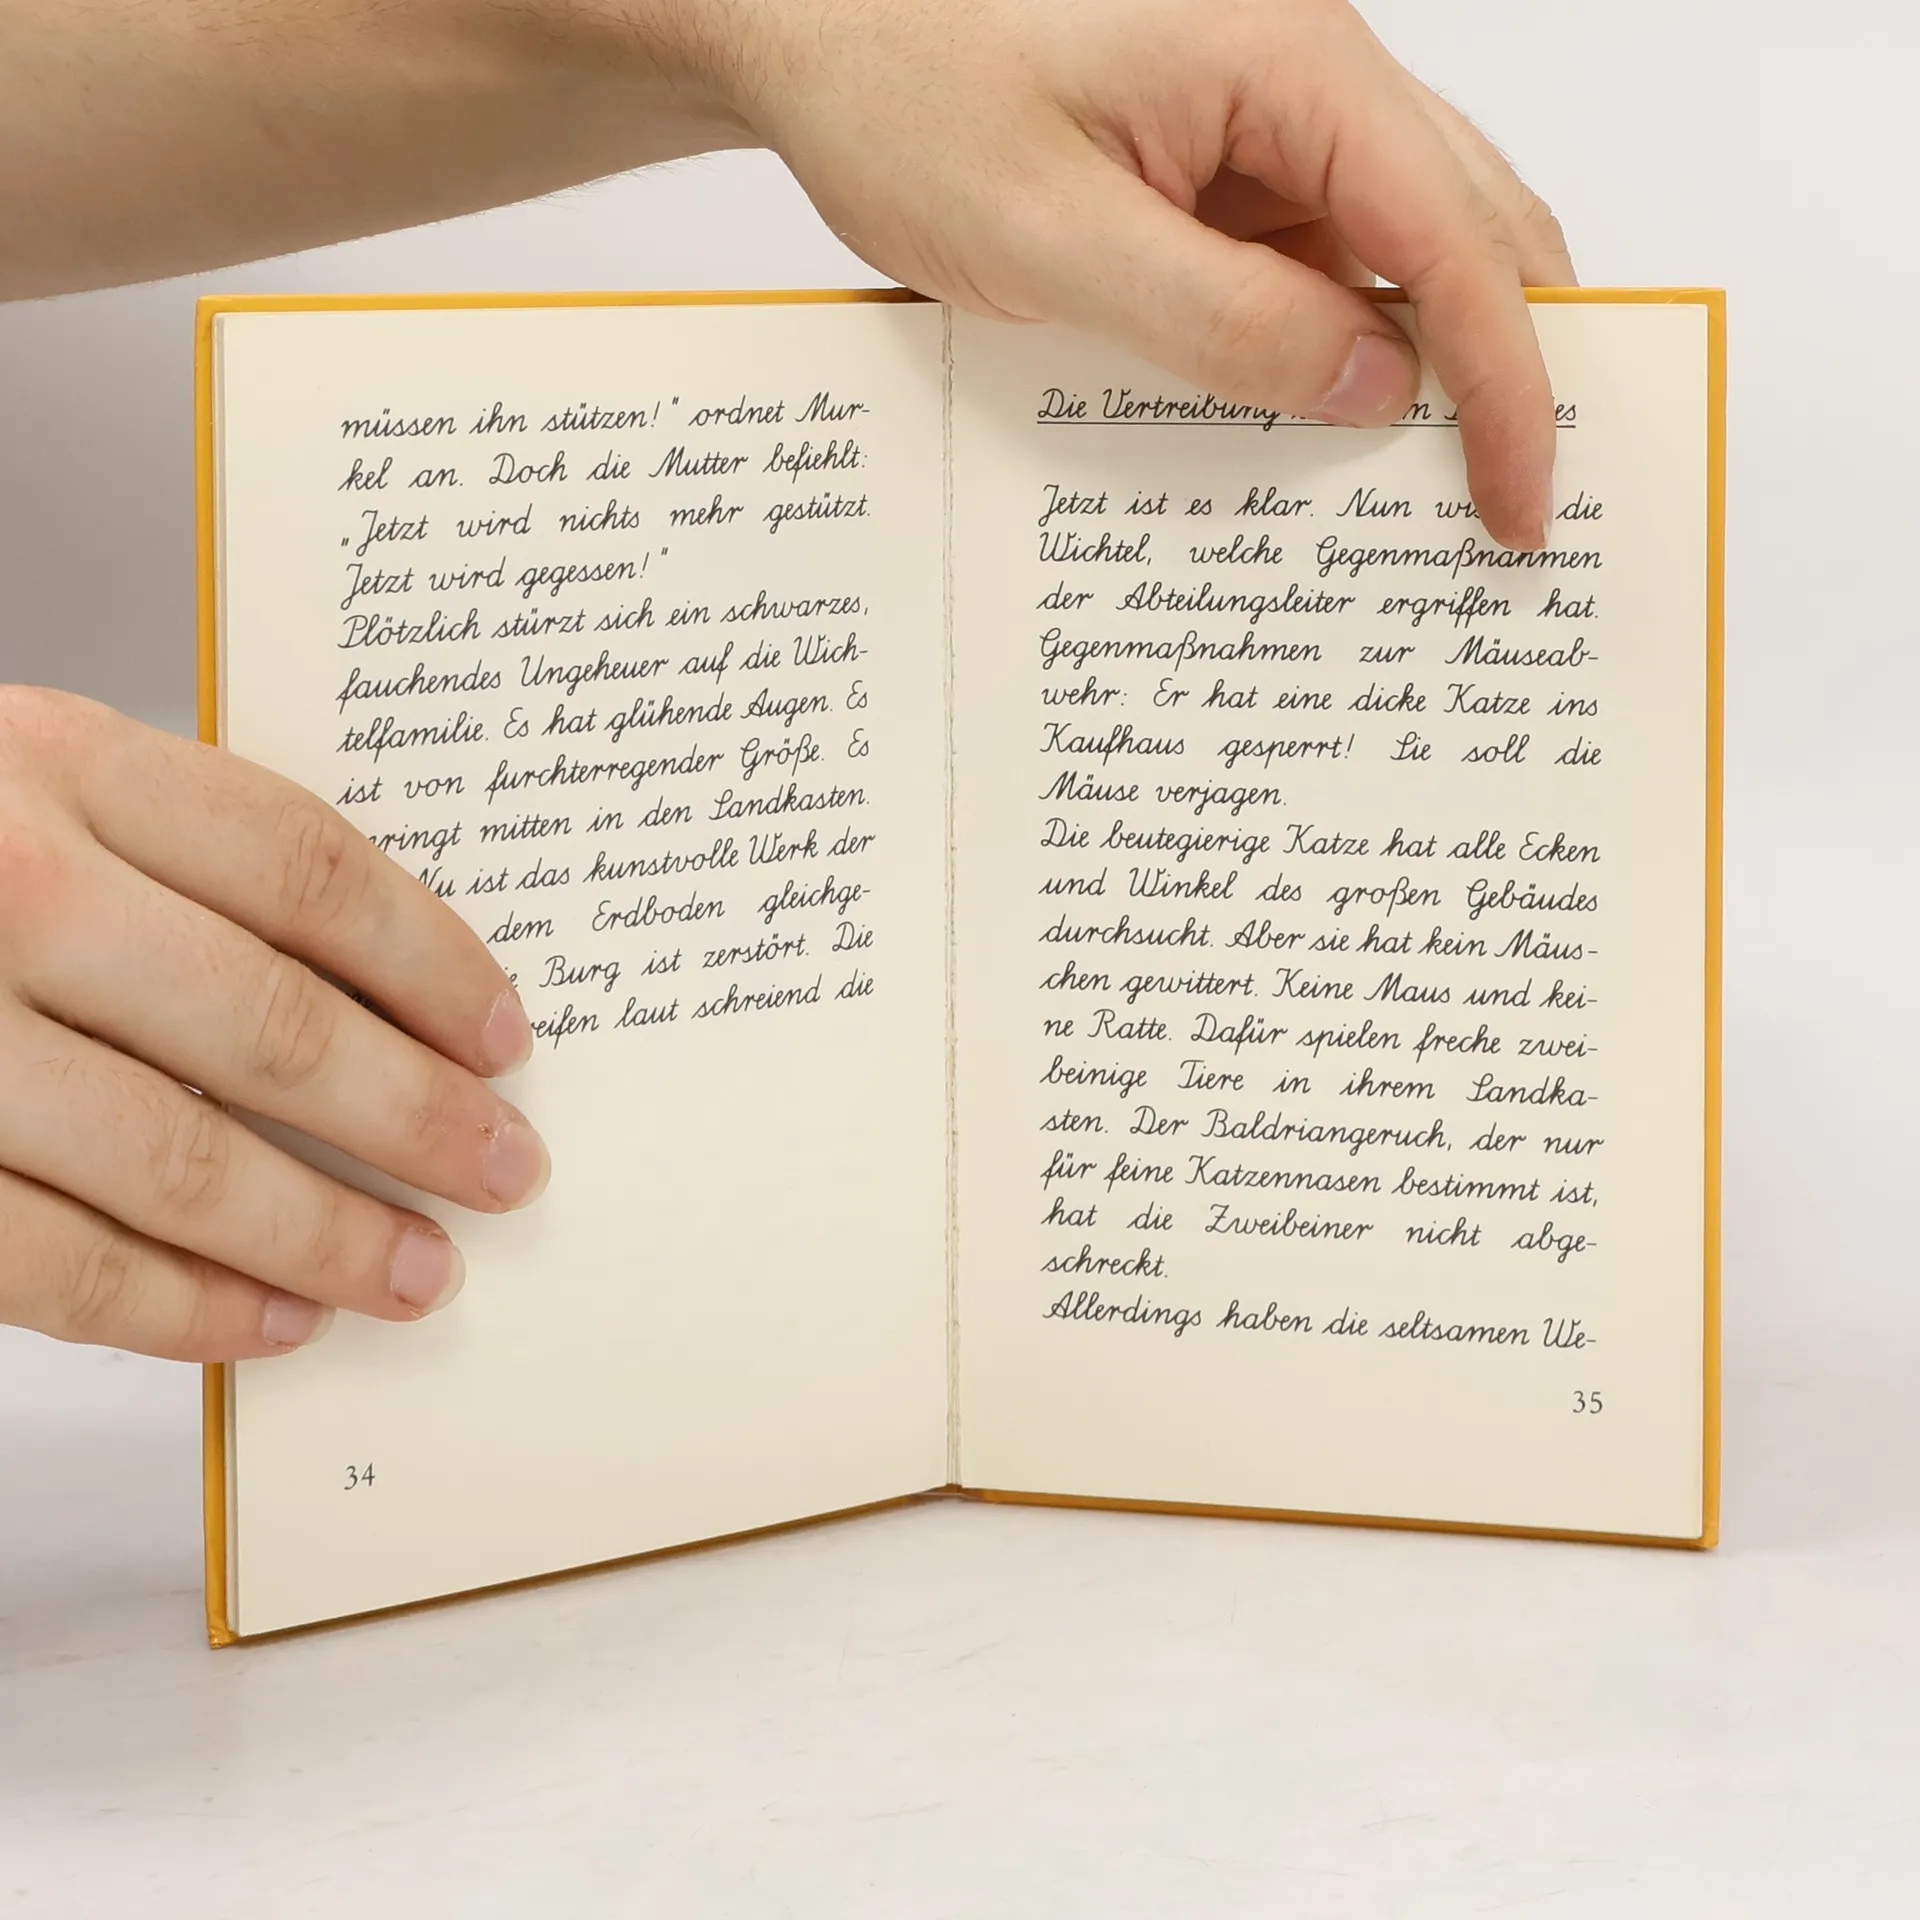 müssen ihn stützen!" ordnet Mur-
kel an. Doch die Mutter befiehlt:
„Jetzt wird nichts mehr gestützt.
Jetzt wird gegessen!"
Plötzlich stürzt sich ein schwarzes,
fauchendes Ungeheuer auf die Wich-
telfamilie. Es hat glühende Augen. Es
ist von furchterregender Größe. Es
mitten in den Sandkasten.
Nu ist das kunstvolle Werk der
dem Erdboden gleichge-
Burg ist zerstört. Die
laut schreiend die
34
Die Vertreibung
Jetzt ist es klar. Nun die
Wichtel, welche Gegenmaßnahmen
der Abteilungsleiter ergriffen hat.
Gegenmaßnahmen zur Mäuseab-
wehr: Er hat eine dicke Katze ins
Kaufhaus gesperrt! Sie soll die
Mäuse verjagen.
Die beutegierige Katze hat alle Ecken
und Winkel des großen Gebäudes
durchsucht. Aber sie hat kein Mäus-
chen gewittert. Keine Maus und kei-
ne Ratte. Dafür spielen freche zwei-
beinige Tiere in ihrem Sandka-
sten. Der Baldriangeruch, der nur
für feine Katzennasen bestimmt ist,
hat die Zweibeiner nicht abge-
schreckt.
Allerdings haben die seltsamen We-
35